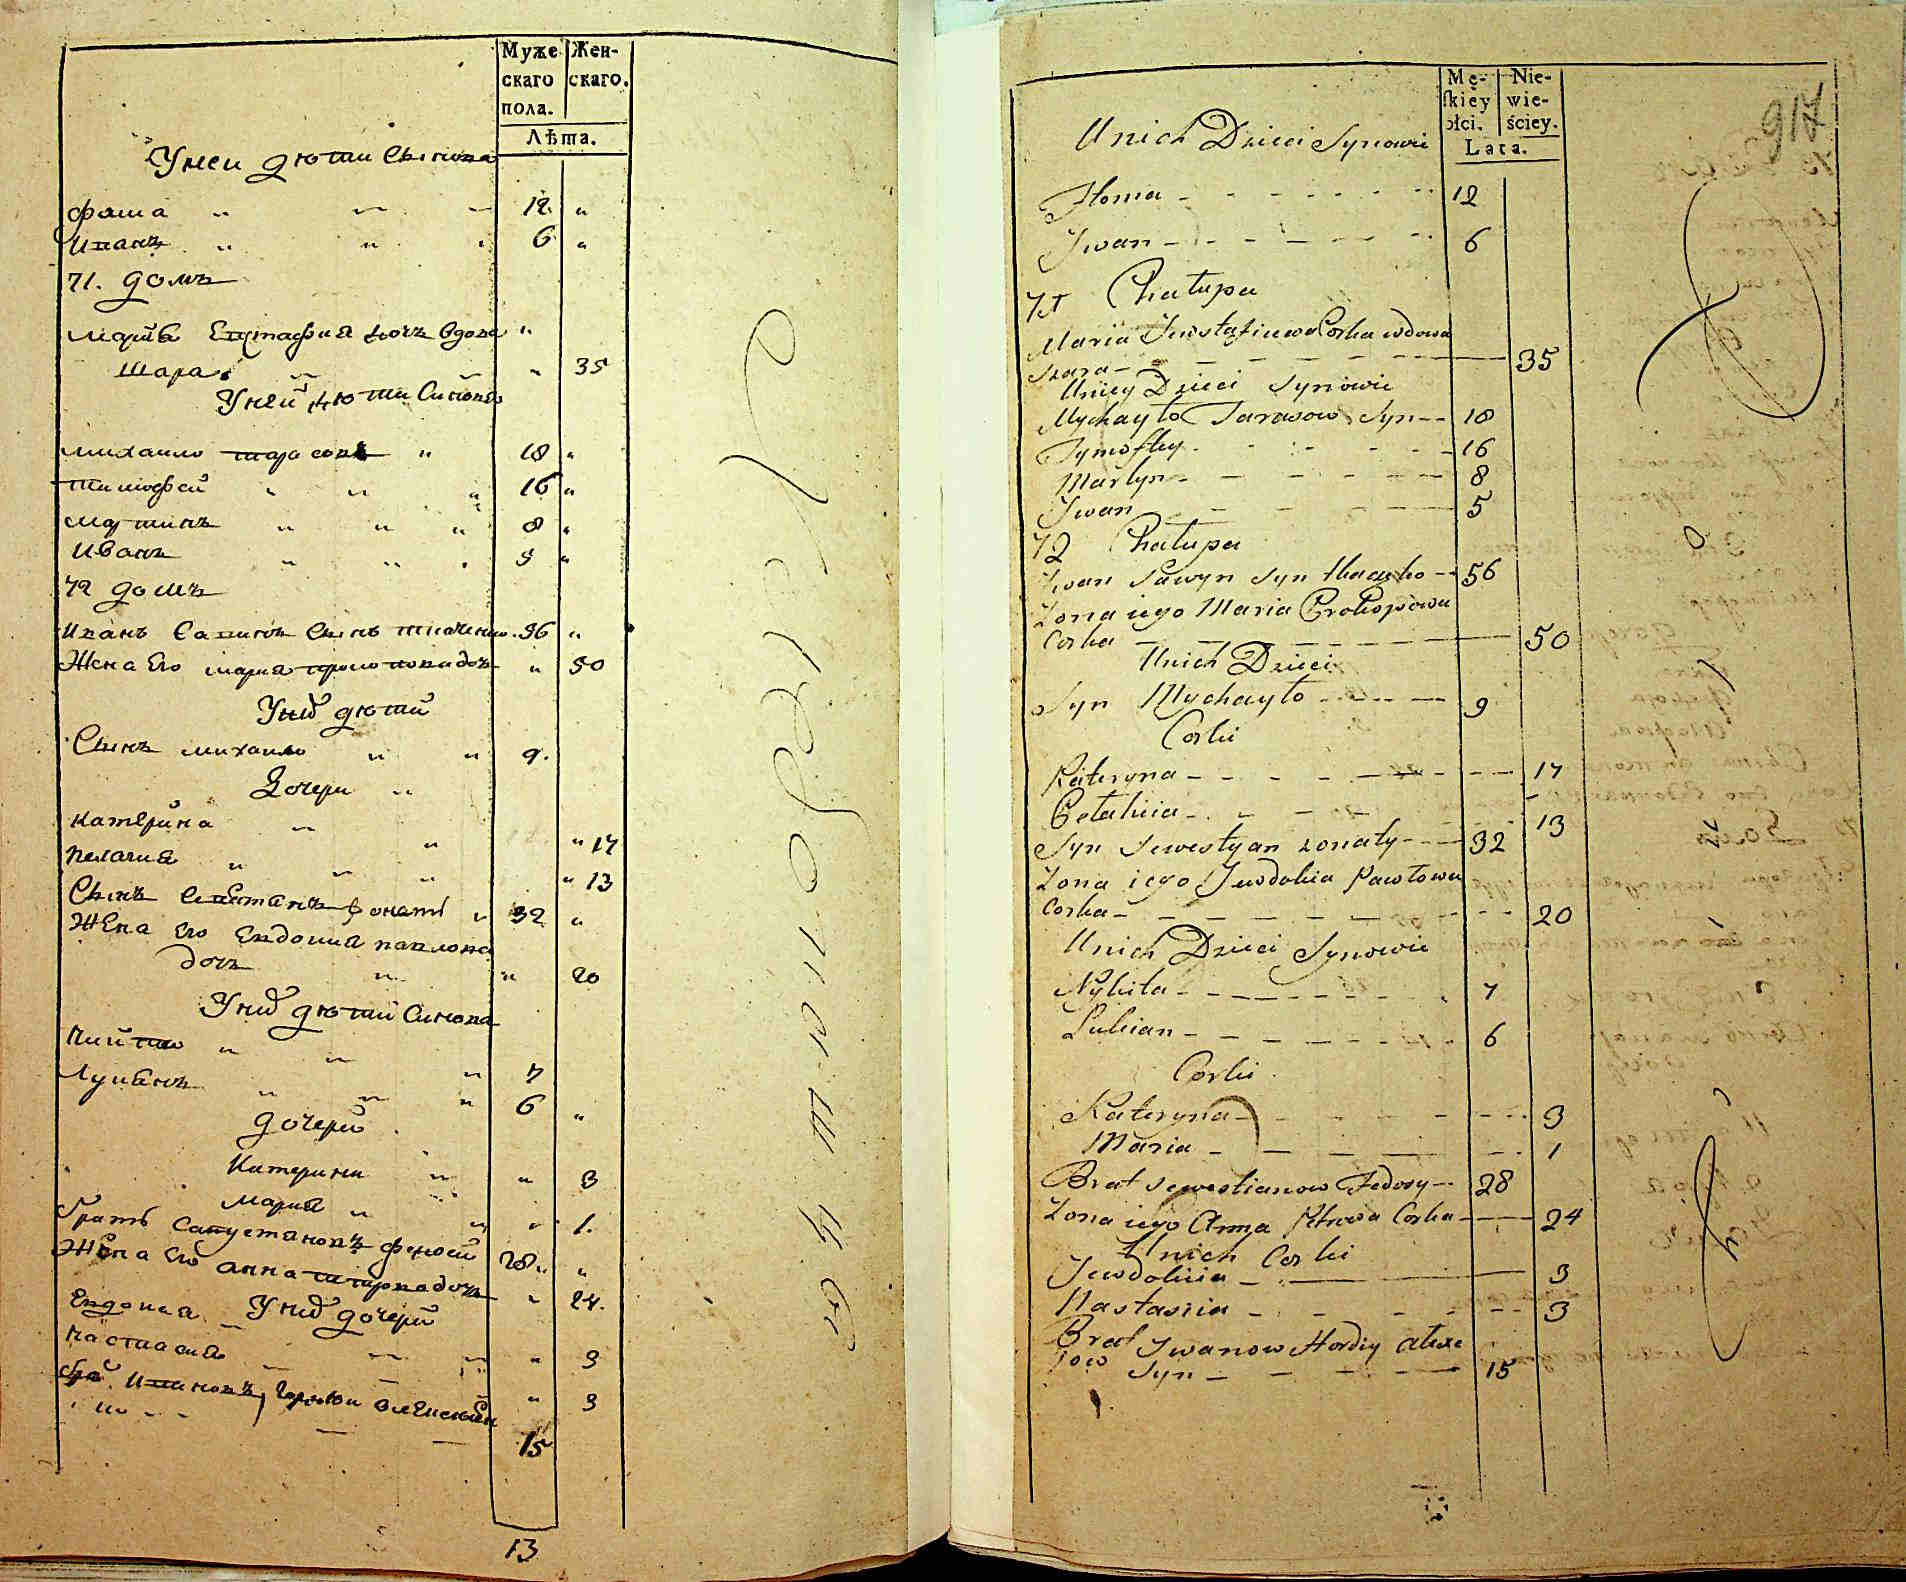 Муже
скаго
пола.
Жен-
скаго.
Лѣта.
Унеи дюти Синова
Фома 12 "
Иванъ 6 "
71. домъ
Марія Евстафия дочъ вдова "
Шара " 35
Уней дюти Синова
Михаило Тарасовъ " 18 "
Тимофей 16 "
Мартинъ 8 "
Иванъ 5 "
72 домъ
Иванъ Савинъ Синъ 56 "
Жена Его Мария дочъ " 50
Унид дюти
Синъ Михаило 9.
Дочери
Катерина " 17
Пелагия " 13
Синъ жонатъ 32 "
Жена Его Евдокия Павлова
дочъ " 20
Унид дюти Синова
7
Лукянъ 6 "
Дочери
Катерина " 3
Мария " 1.
Братъ Федосей 28 "
Жена Его Анна Петрова дочъ " 24.
Унид дочери
Евдокия " 3
Настасия " 3
15
13
Mę-
skiey
płci.
Nie-
wie-
ściey.
Lata.
917
Unich Dzieci Synowie
Homa 12
Jwan 6
71 Chałupa
Maria Jewstafiiewa Corka wdowa
Szara 35
Uniey Dzieci Synowie
Mychayło Tarasow Syn 18
Tymofiey 16
Martyn 8
Jwan 5
72 Chałupa
Jwan Sawyn Syn 56
Zona iego Maria Prokopowa
Corka 50
Unich Dzieci
Syn Mychayło 9
Corki
Kateryna 17
Pelahiia 13
Syn Sewestyan zonaty 32
Zona iego Jewdokia Pawłowa
Corka 20
Unich Dzieci Synowie
Nykita 7
Lukian 6
Corki
Kateryna 3
Maria 1
Brat Sewestianow Fedosy 28
Zona iego Anna Petrowa Corka 24
Unich Corki
Jewdokiia 3
Nastasiia 3
Brat Jwanow Hordiy Alexe
iow Syn 15